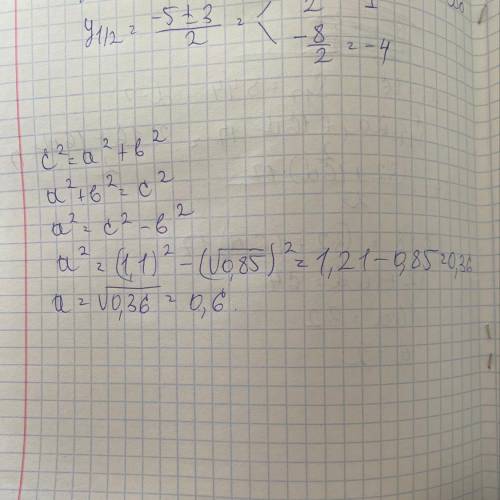 y₁/₂ = (-5 ± 3)/2 = < 2
-8/2 = -4
c² = a² + b²
a² + b² = c²
a² = c² - b²
a² = (1,1)² - (√0,85)² = 1,21 - 0,85 = 0,36
a = √0,36 = 0,6.